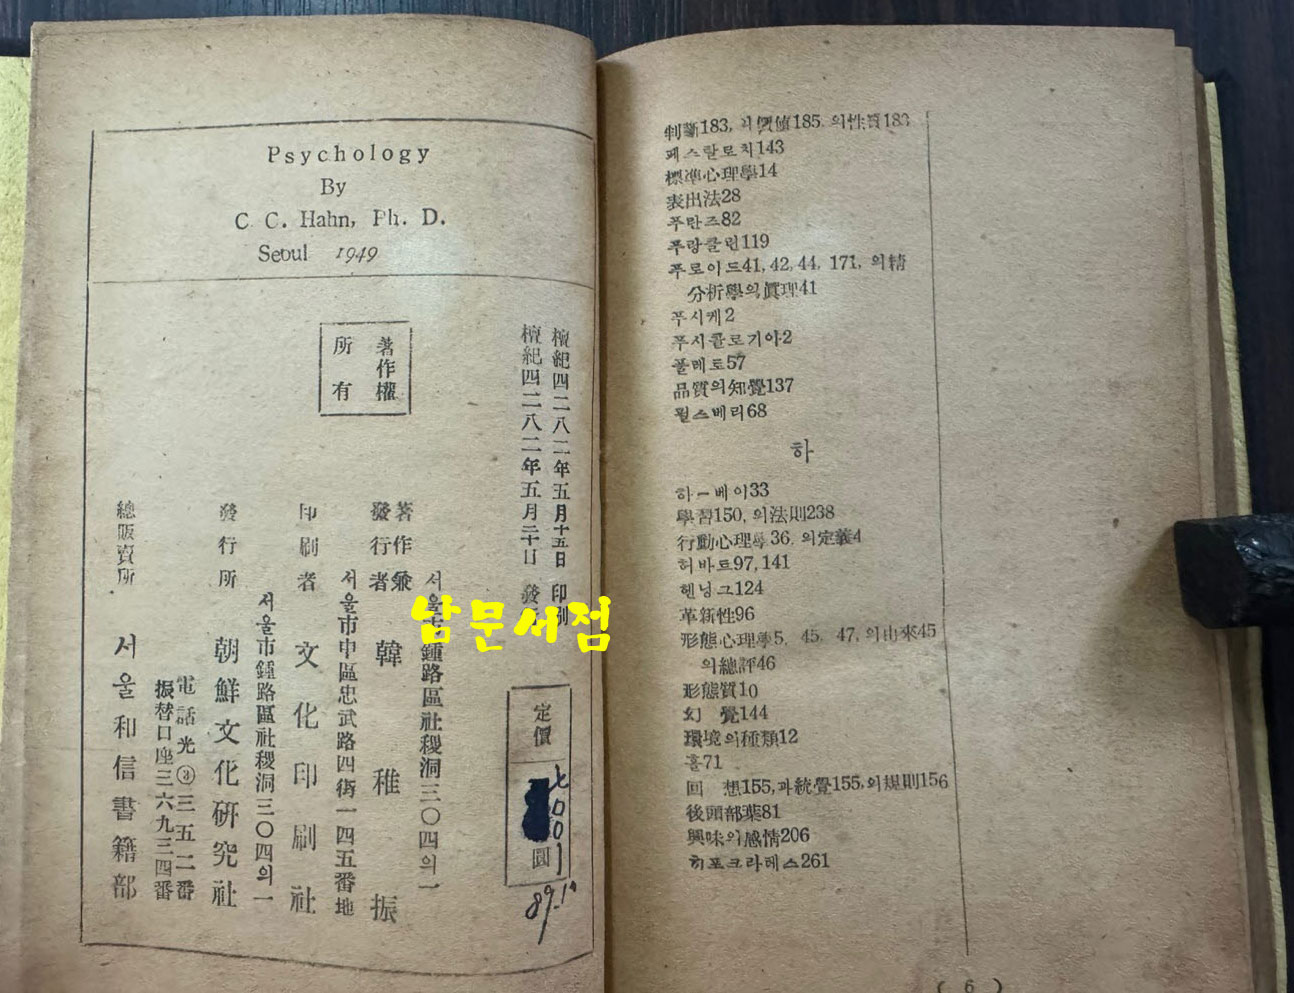 Psychology
By
C. C. Hahn, Ph. D.
Seoul 1949
著作權
所有
檀紀四二八二年五月十五日 印刷
檀紀四二八二年五月二十日 發
서울 鍾路區社稷洞三〇四의一
著作兼
發行者 韓稚振
서울市中區忠武路四街一四五番地
印刷者 文化印刷社
서울市鍾路區社稷洞三〇四의一
發行所 朝鮮文化硏究社
電話光③三五二番
振替口座三六九三四番
總販賣所 서울和信書籍部
定價
七〇〇
圓
89.1
남문서점
判斷183, 의價値185, 의性質183
페스탈로치143
標準心理學14
表出法28
푸란즈82
푸랑클린119
푸로이드41, 42, 44, 171, 의精
分析學의眞理41
푸시케2
푸시콜로기아2
풀레토57
品質의知覺137
필스베리68
하
하ー베이33
學習150, 의法則238
行動心理學36, 의定義4
허바트97, 141
헨닝그124
革新性96
形態心理學5, 45, 47, 의由來45
의總評46
形態質10
幻 覺144
環境의種類12
홀71
回 想155, 과統覺155, 의規則156
後頭部葉81
興味의感情206
히포크라테스261
( 6 )